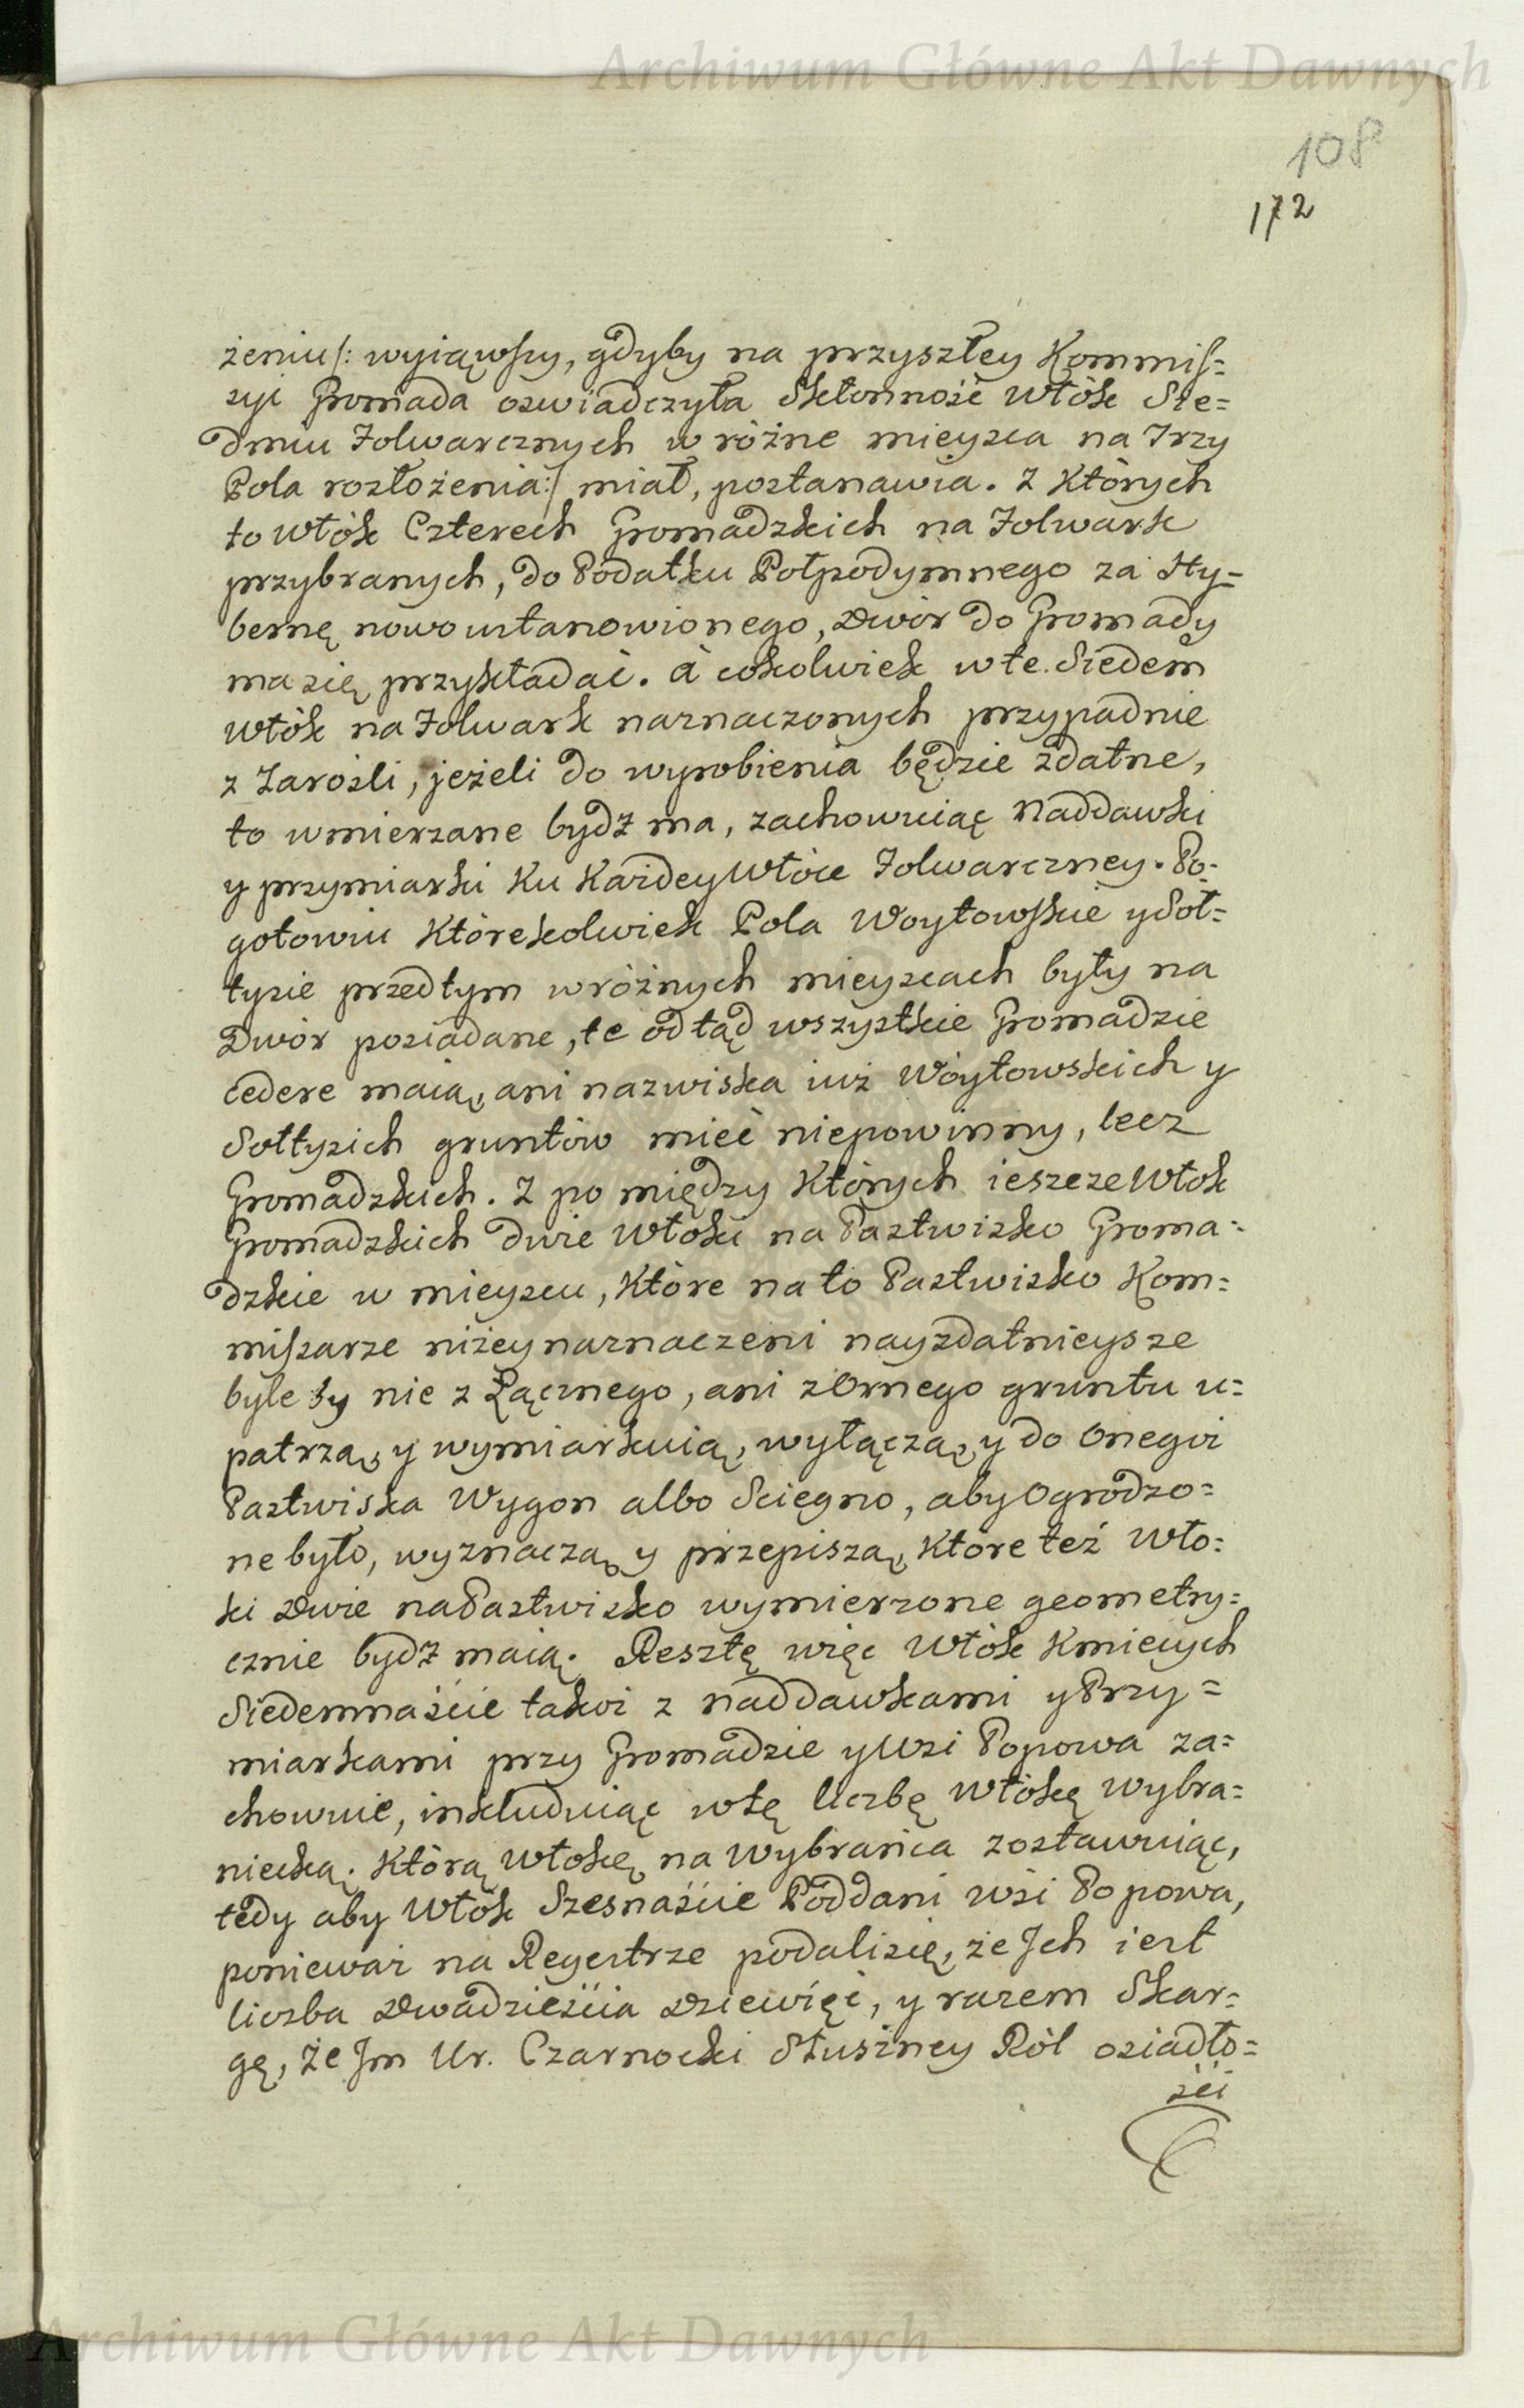 Archiwum Główne Akt Dawnych
108
172
żeniu/: wyiąwszy, gdyby na przyszłey Kommis=
syi Gromada oswiadczyła Skłonność Włók Sie=
dmiu Folwarcznych w różne mieysca na Trzy
Pola rozłożenia:/ miał, postanawia. Z Których
to Włók Czterech Gromadzkich na Folwark
przybranych, do Podatku Połpodymnego za Hy=
bernę nowoustanowionego, Dwór do Gromady
ma się przykładać. à cokolwiek w te Siedem
Włók na Folwark naznaczonych przypadnie
z Zarośli, jeżeli do wyrobienia będzie zdatne,
to wmierzane bydź ma, zachowuiąc Naddawki
y przymiarki Ku Każdey Włóce Folwarczney. Po=
gotowiu Którekolwiek Pola Woytowskie y Soł=
tysie przedtym w różnych mieyscach były na
Dwór posiadane, te odtąd wszystkie Gromadzie
cedere maią, ani nazwiska iuż Wóytowskich y
Sołtysich gruntów mieć niepowinny, lecz
Gromadzkich. Z po między Których ieszcze Włók
Gromadzkich dwie Włóki na Pastwisko Groma=
dzkie w mieyscu, Które na to Pastwisko Kom=
missarze niżey naznaczeni nayzdatnieysze
byle by nie z Łącznego, ani z Ornego gruntu u=
patrzą, y wymiarkuią, wyłączą, y do Onegoż
Pastwiska Wygon albo Sciegno, aby Ogrodzo=
ne było, wyznaczą y przepiszą, Które też Wło=
ki Dwie na Pastwisko wymierzone geometry=
cznie bydź maią. Resztę więc Włók Kmiecych
Siedemnaście takoż z naddawkami y Przy=
miarkami przy Gromadzie y Wsi Popowa za=
chowuie, inkluduiąc w tę liczbę Włókę Wybra=
niecką. Którą Włokę na Wybrańca zostawuiąc,
tedy aby Włók Szesnaście Poddani wsi Popowa,
ponieważ na Regestrze podali się, że Jch iest
liczba Dwadzieścia Dziewięć, y razem Skar=
gę, że Jm Ur. Czarnocki Słuszney Ról osiadło=
ści
Archiwum Główne Akt Dawnych